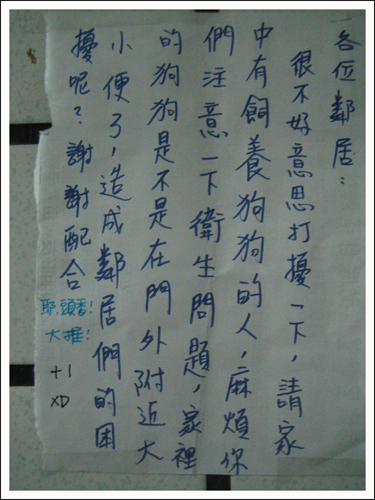 各位鄰居：
很不好意思打擾一下，請家
中有飼養狗狗的人，麻煩你
們注意一下衛生問題，家裡
的狗狗是不是在門外附近大
小便了，造成鄰居們的困
擾呢？謝謝配合
耶，頭香！
大推！
+1
XD